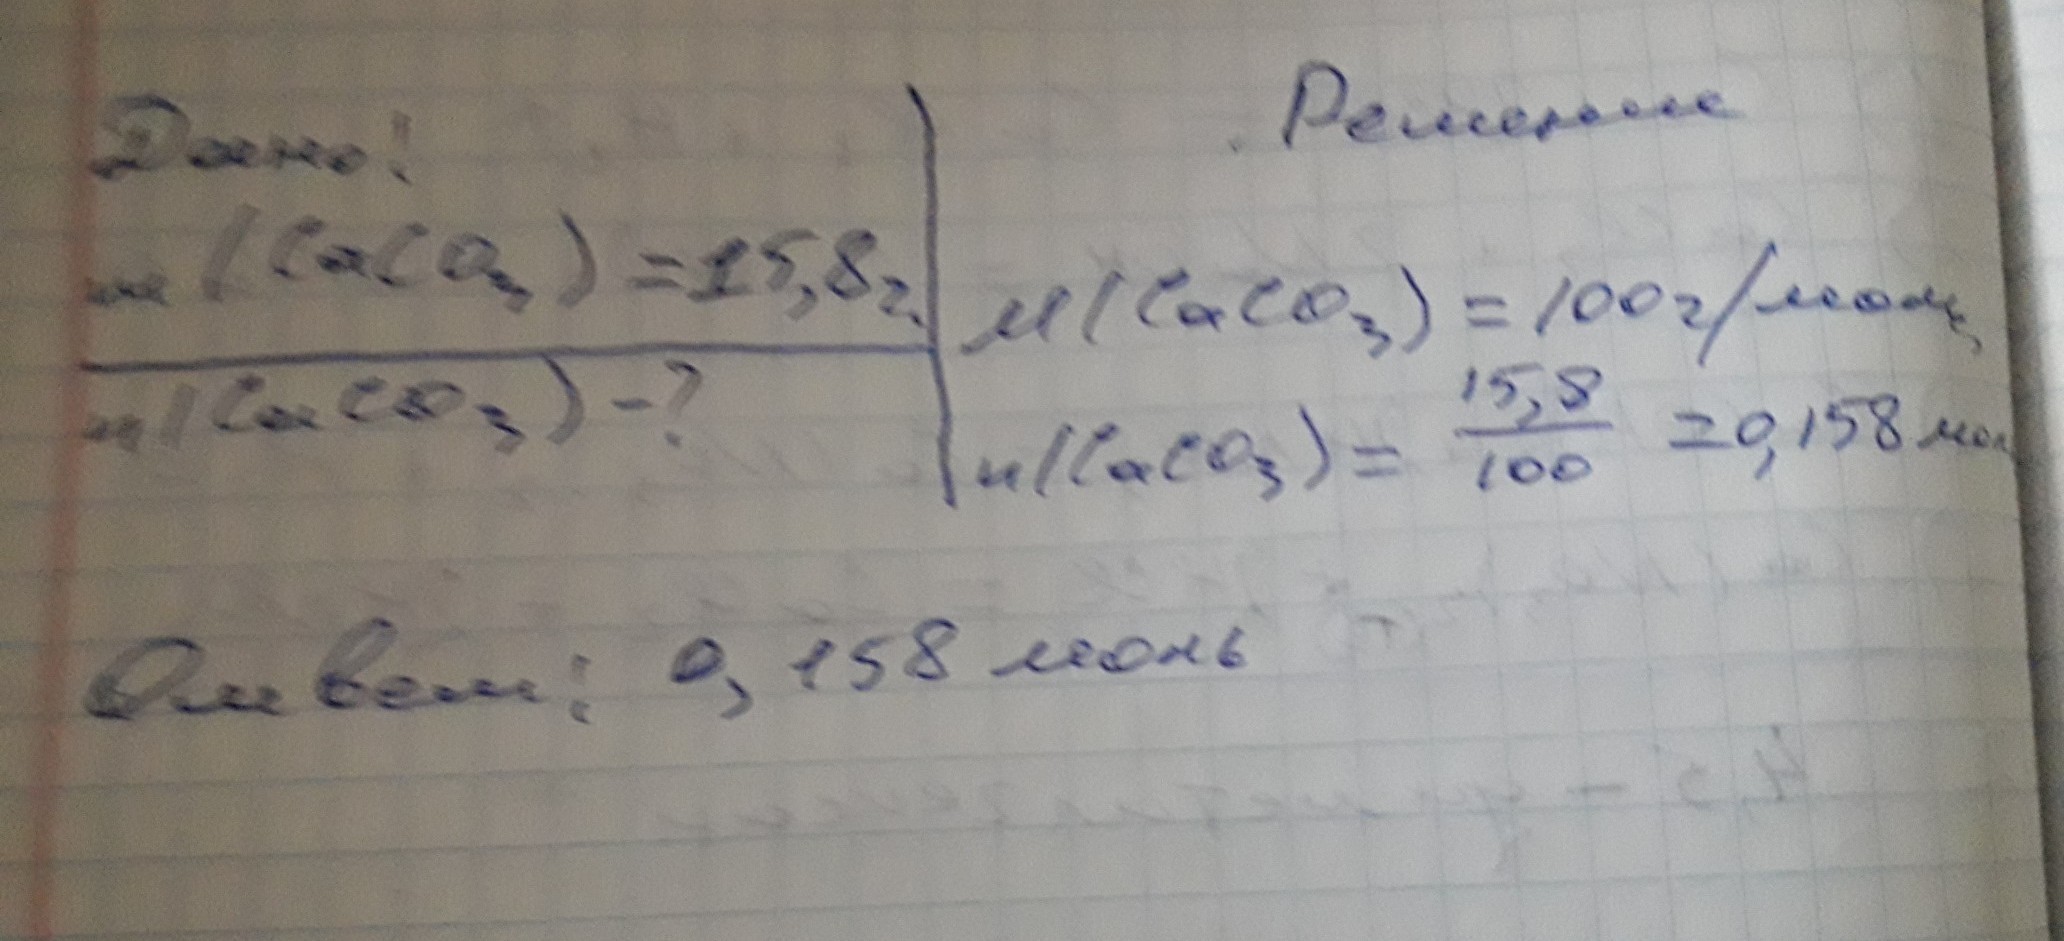 Дано:
m(CaCO₃) = 15,8г.
n(CaCO₃) - ?
Решение
M(CaCO₃) = 100г/моль,
n(CaCO₃) = 15,8/100 = 0,158 мол
Ответ: 0,158 моль